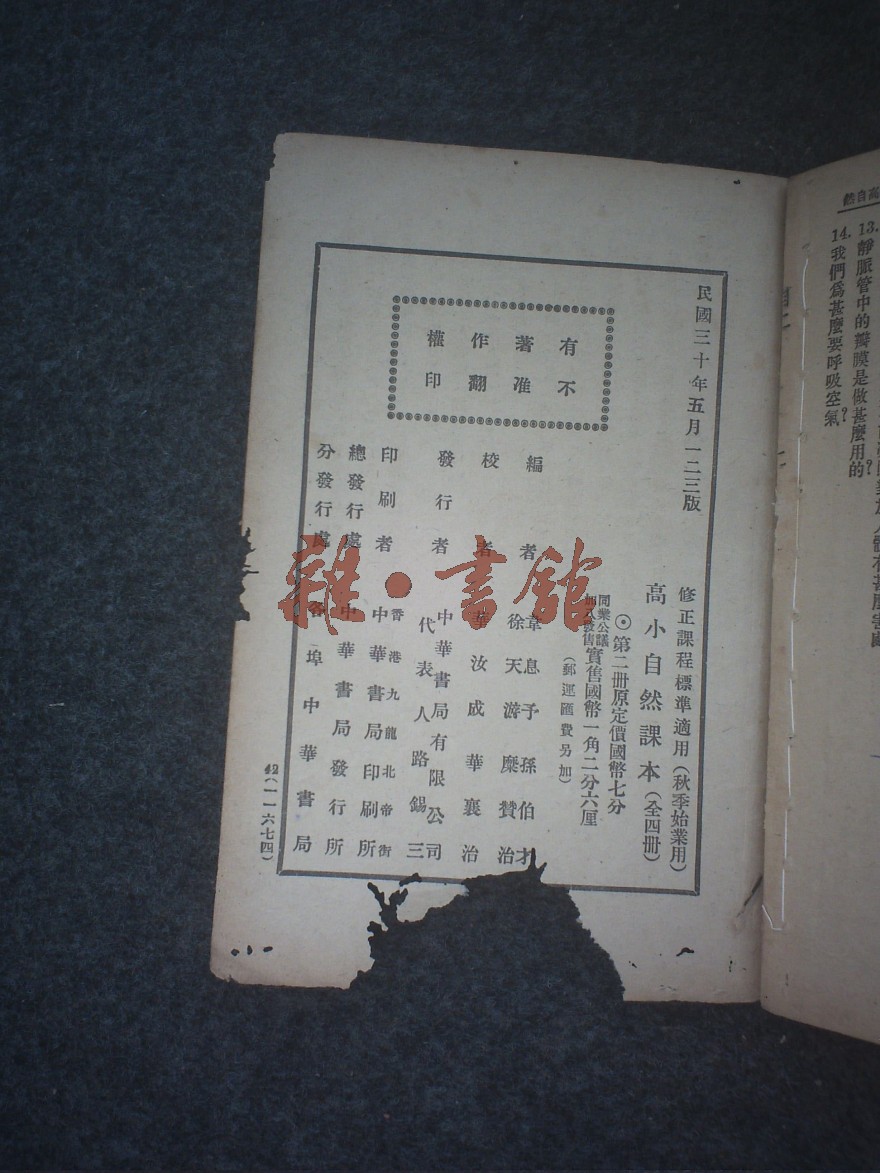 民國三十年五月一二三版
有著作權
不准翻印
修正課程標準適用(秋季始業用)
高小自然課本(全四冊)
⊙第二冊原定價國幣七分
同業公議
發售實售國幣一角二分六厘
(郵運匯費另加)
編者
韋息予 孫伯才
徐天游 糜贊治
校者
華汝成 華襄治
發行者
中華書局有限公司
代表人路錫三
印刷者
香港九龍北帝街
中華書局印刷所
總發行處
中華書局發行所
分發行處
各埠中華書局
42(一一六七四)
雜·書館
高自然
13.靜脈管中的瓣膜是做甚麼用的?
14.我們爲甚麼要呼吸空氣?